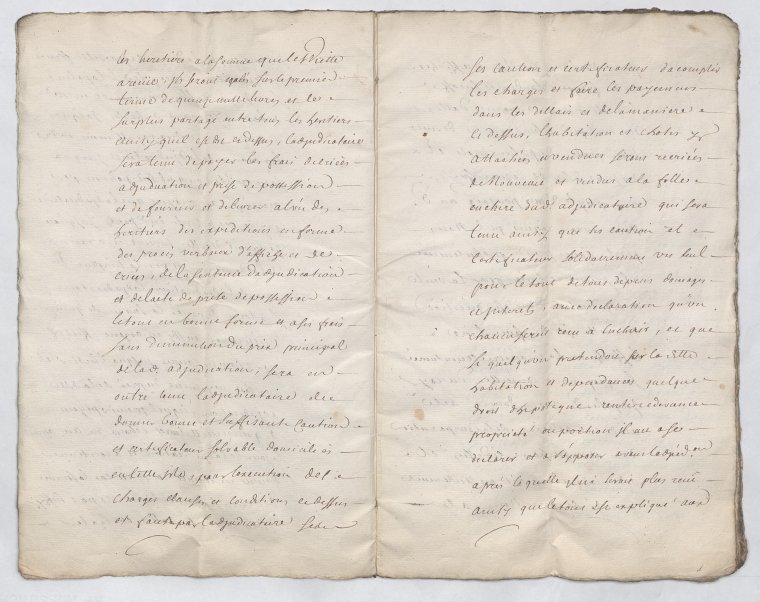 les heritiers a la somme que led Viette
a reçüe ; ils seront egalés sur le premier
terme de quinze mille livres et le
surplus partagé entre tous les heritiers
ainsy quil est dit cy dessus, Ladjudicataire
sera tenu de payer les frais de criées
adjudication et prise de possession
et de fournir et delivrer a lun des
heritiers des expeditions en forme
des procès verbaux d'affiche et de
criées, de la sentence dadjudication
et delacte de prise de possession
le tout en bonne forme et a ses frais
sans diminution du prix principal
de lad. adjudication ; sera en
outre tenu ladjudicataire de
donner bonne et suffisante caution
et certificateur solvable domicilies
en cette pour lexecution des
charges clauses et conditions cy dessus
et faute par ladjudicataire
ses caution et certificateurs dacomplir
les charges et faire les payemens
dans les dellais et de la maniere
cy dessus, Lhabitation et choses y
attachées a vendues seront recriées
de Nouveau et vendus a la folle
enchere dud. adjudicataire qui sera
tenu ainsy que ses caution et
Certificateur solidairement un seul
pour le tout de tous depens domages
et Interets, avec declaration qu'un
chacun serat reçu a Encherir, et que
si quelqu'un pretendoit sur lad. ditte
habitation et dependances quelque
droit d'hipoteque, rente redevance
proprieté ou portion il au a se
declarer et a s'opposer avant ladjud.on
après laquelle il ne seroit plus reçu
ainsy que le tout est expliqué aux